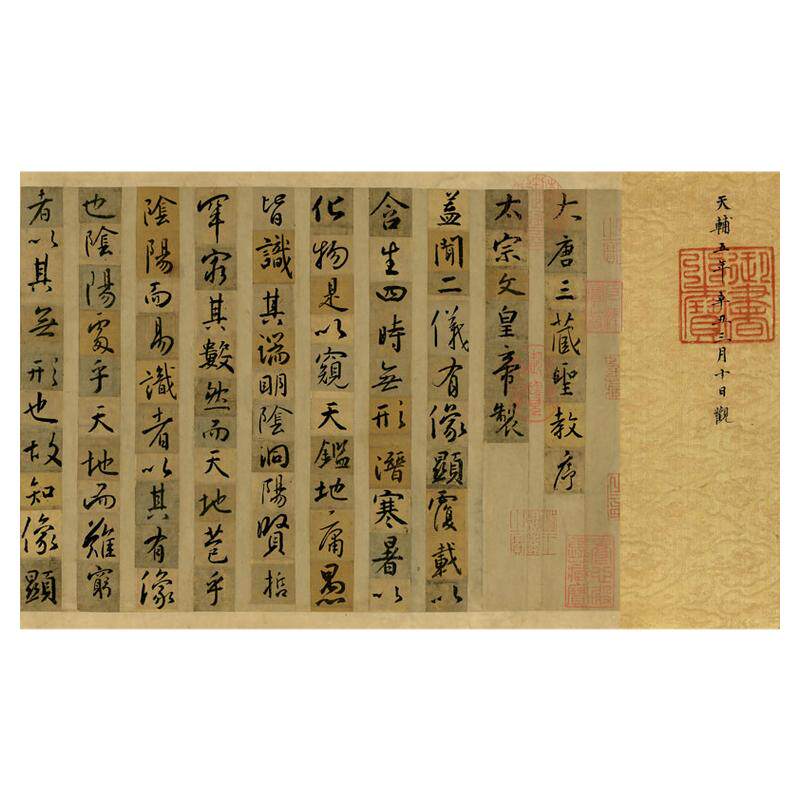 天輔五年辛丑三月十日觀
御書
大唐三藏聖教序
太宗文皇帝製
蓋聞二儀有像顯覆載以
含生四時無形潛寒暑以
化物是以窺天鑑地庸愚
皆識其端明陰洞陽賢哲
罕窮其數然而天地苞乎
陰陽而易識者以其有像
也陰陽處乎天地而難窮
者以其無形也故知像顯